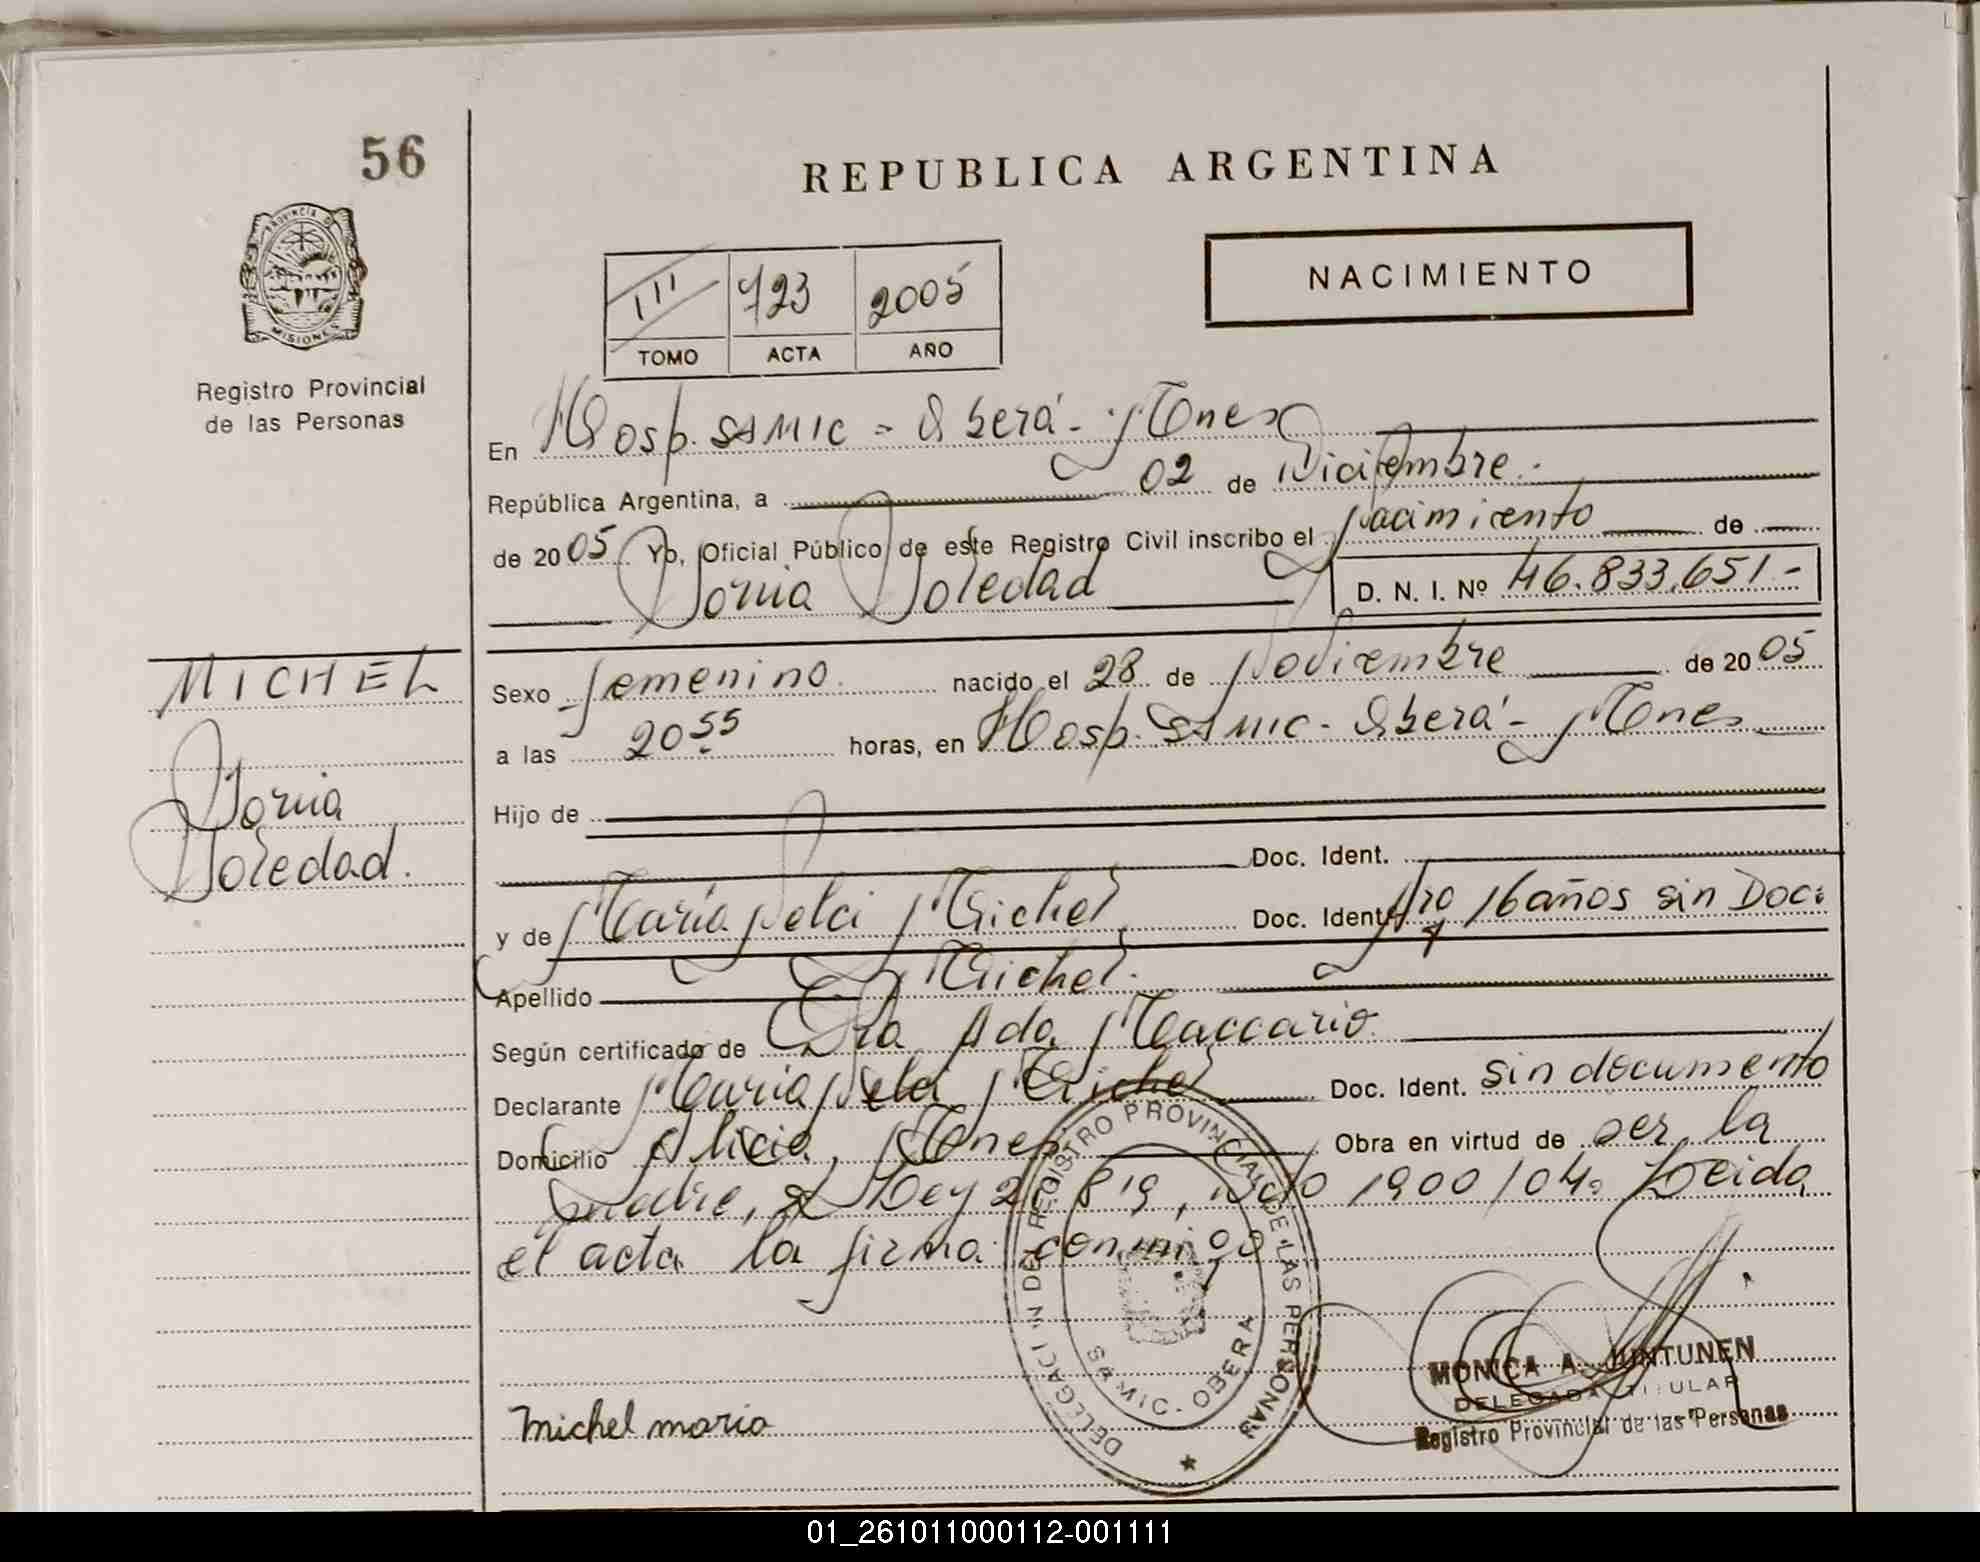 56
REPUBLICA ARGENTINA
PROVINCIA DE
MISIONES
NACIMIENTO
III 723 2005
TOMO ACTA AÑO
Registro Provincial
de las Personas
En Hosp. SAMIC - Oberá - Mnes
República Argentina, a 02 de Diciembre.
de 2005 Yo, Oficial Público de este Registro Civil inscribo el nacimiento de
Sonia Soledad D. N. I. Nº 46.833.651.-
MICHEL
Sexo femenino. nacido el 28 de Noviembre de 2005
a las 20 55 horas, en Hosp. SAMIC - Oberá - Mnes
Sonia
Soledad.
Hijo de
Doc. Ident.
y de María Nelci Michel Doc. Ident. 16 años sin Doc.
Apellido Michel.
Según certificado de Dra Ada Maccario.
Declarante María Nelci Michel Doc. Ident. sin documento
Domicilio Alicia, Mnes Obra en virtud de ser la
madre, Ley 819, 1900/04. Leida
el acta la firma conmigo
DELEGACION DEL REGISTRO PROVINCIAL DE LAS PERSONAS
SAMIC - OBERA
MONICA A. JUNTUNEN
DELEGADA TITULAR
Registro Provincial de las Personas
Michel maria
01_261011000112-001111